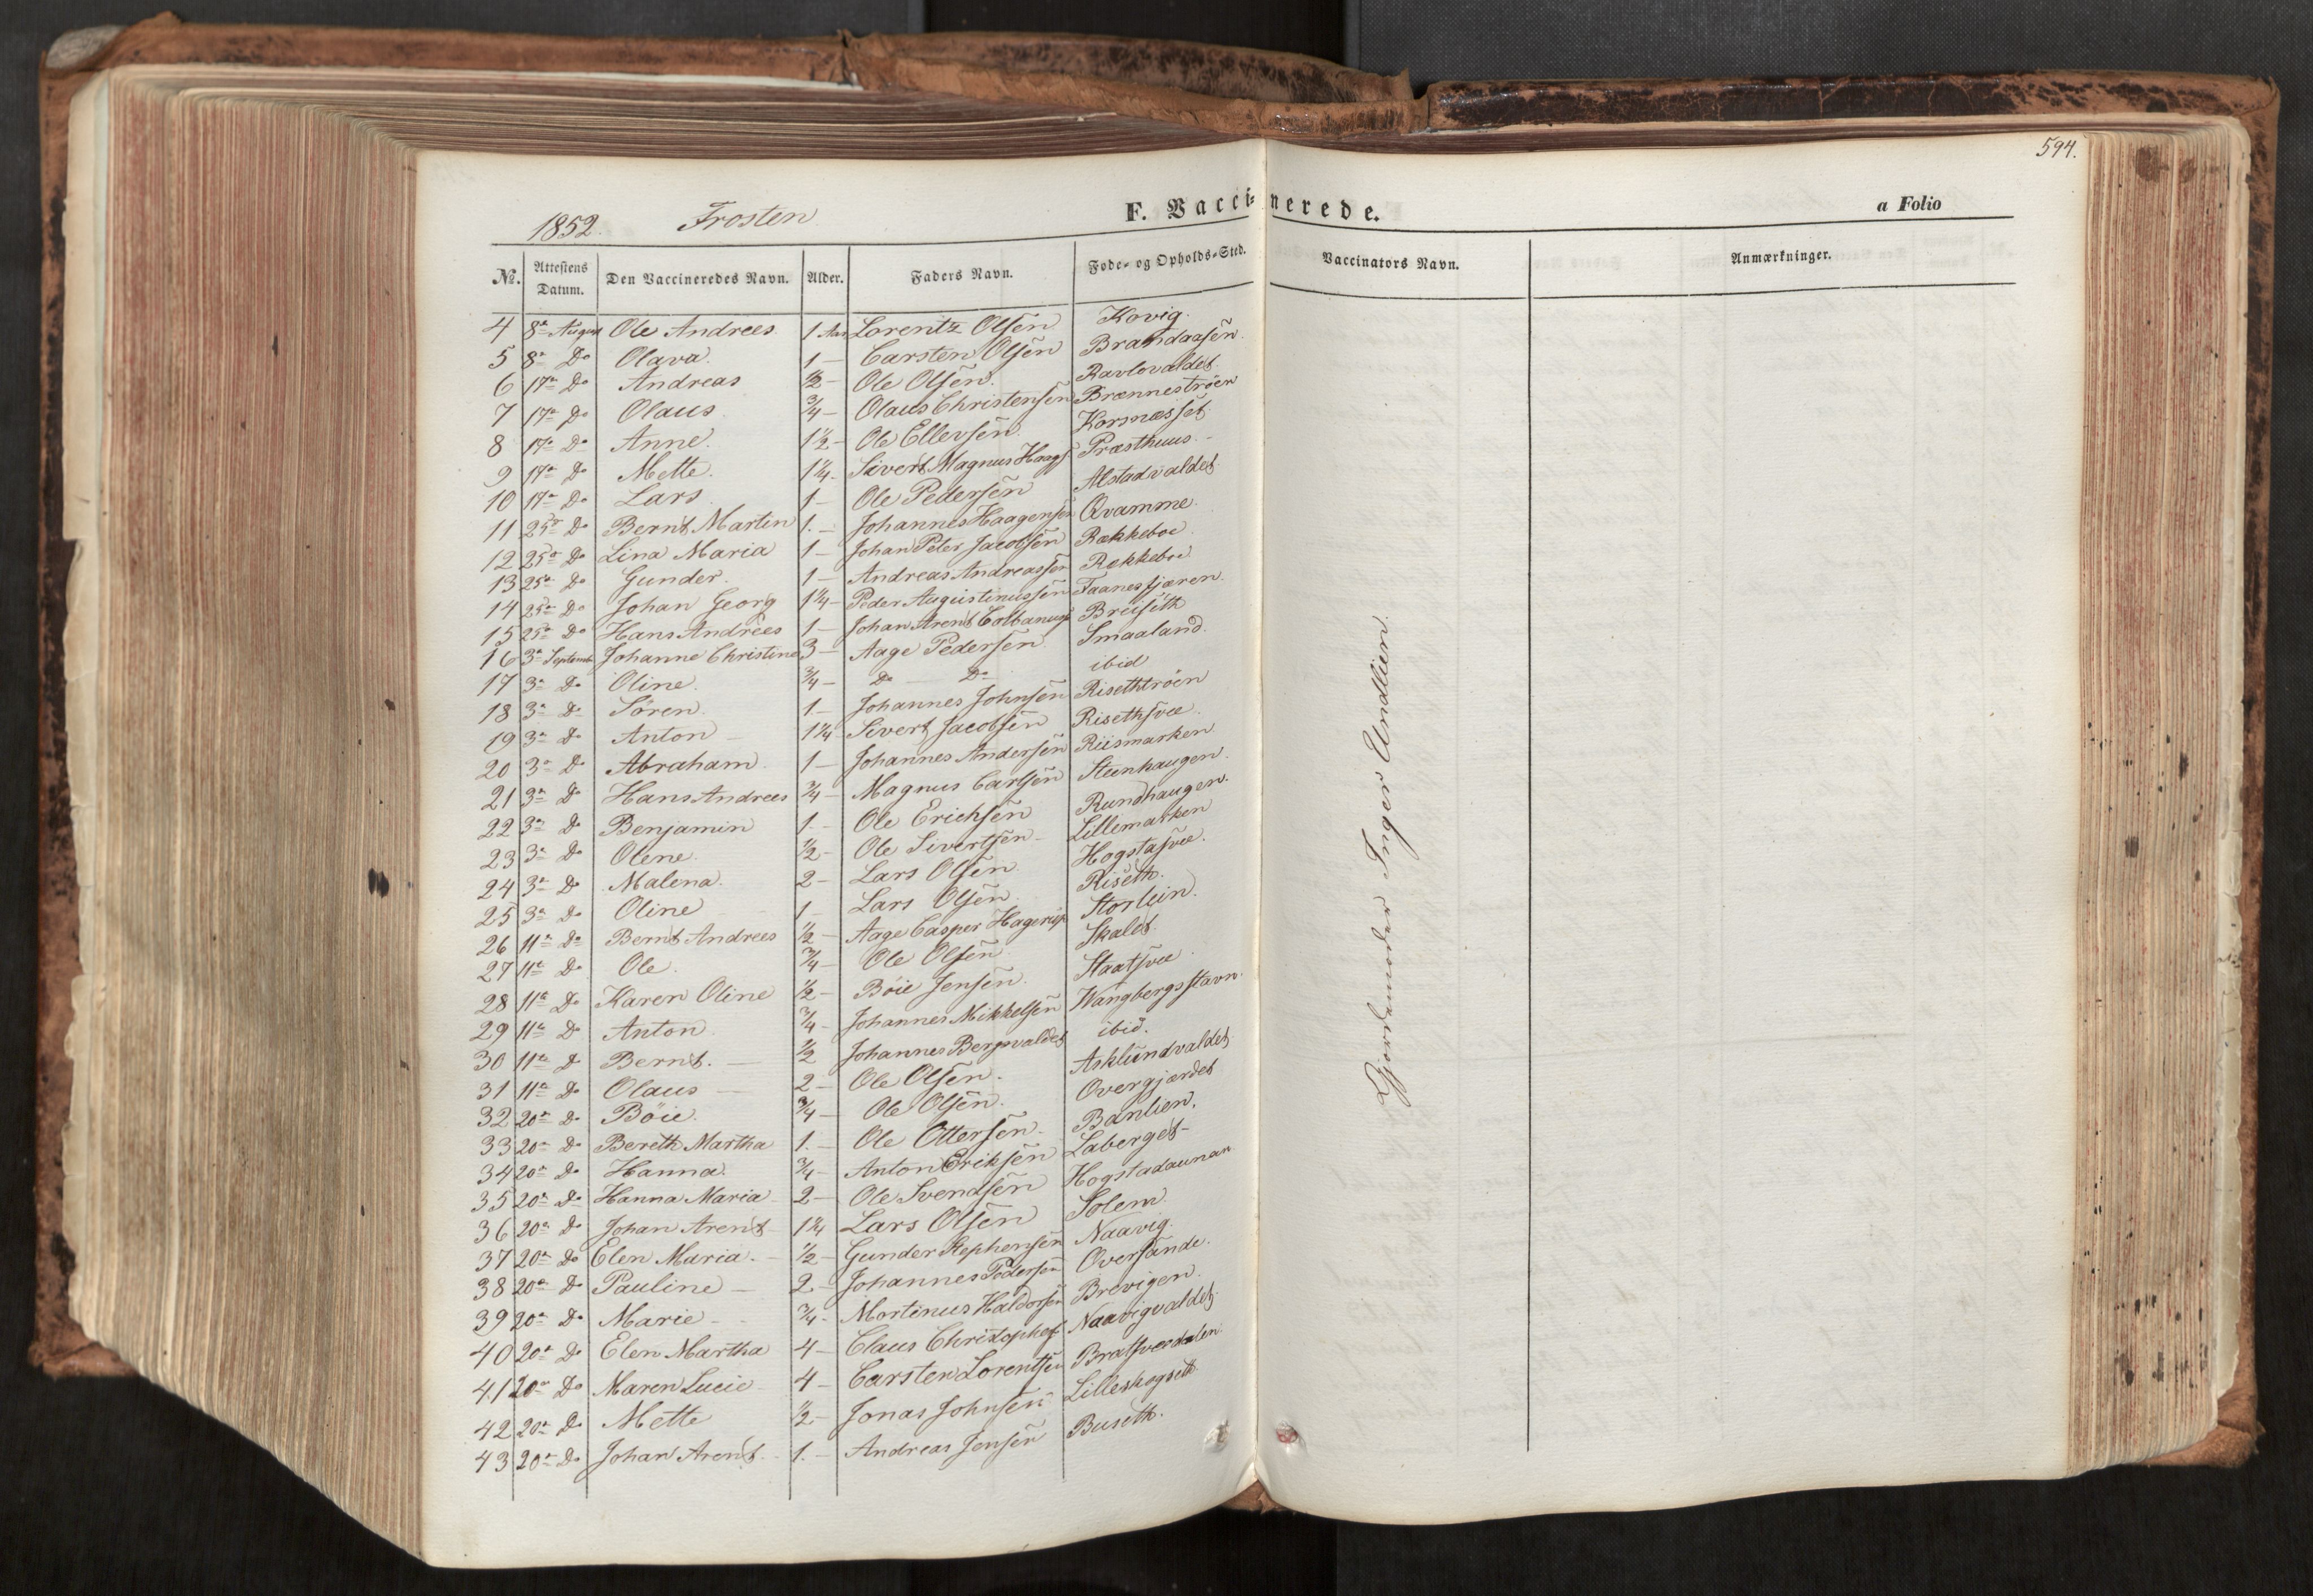 594.
1852. Frosten F. Vaccinerede. a Folio
№. Attestens Datum. Den Vaccineredes Navn. Alder. Faders Navn. Føde- og Opholds-Sted. Vaccinators Navn. Anmærkninger.
4 8de August Ole Andrees 1 Aar Lorentz Olsen Kovig.
5 8de Do Olava. 1 – Carsten Olsen Brandaasen
6 17de Do Andreas ½ – Ole Olsen. Ravlovaldet
7 17de Do Olaus ¾ – Olaus Christensen Brænnestrøen
8 17de Do Anne. 1½ – Ole Ellevsen Korsnæsset
9 17de Do Mette. 1¼ – Sivert Magnus Haags Præsthuus. –
10 17de Do Lars 1 – Ole Pedersen Alstadvaldet
11 25de Do Bernt Martin 1. – Johannes Haagensen Qvamme.
12 25de Do Lina Maria 1 – Johan Peter Jacobsen Rækkeboe
13 25de Do Gunder. 1 – Andreas Andreassen Rækkeboe
14 25de Do Johan Georg 1¼ – Peder Augustinussen Faanesfjæren.
15 25de Do Hans Andrees 1 – Johan Arent Colbanus Breiseth
16 3de Septemb. Johanne Christine 3 – Aage Pedersen Smaaland.
17 3de Do Oline. ¾ – Do Do ibid
18 3de Do Sören. 1 – Johannes Johnsen Risethtröen
19 3de Do Anton – 1¼ Sivert Jacobsen Risethsvee.
20 3de Do Abraham. 1 – Johannes Andersen Riismarken
21 3de Do Hans Andrees ¾ – Magnus Carlsen Steenhaugen.
22 3de Do Benjamin 1. – Ole Erichsen Rundhaugen.
23 3de Do Olene. ½ – Ole Sivertsen – Lillemarken
24 3de Do Malena. 2 – Lars Olsen Hogstasvee.
25 3de Do Oline 1 Lars Olsen Riseth.
26 11de Do Bernt Andrees ½ – Aage Casper Hagerup Storlein.
27 11te Do Ole. ¾ – Ole Olsen. Skalet.
28 11te Do Karen Oline ½ – Böie Jensen. Staatsvee
29 11te Do Anton. ¾ – Johannes Mikkelsen Wangbergsstavn.
30 11te Do Bernt. – ½ Johannes Bergsvaldet ibid.
31 11te Do Olaus – 2 – Ole Olsen. Asklundvaldet
32 20de Do Böie. ¾ – Ole Olsen. Overgjærdet
33 20de Do Bereth Martha 1. – Ole Ottersen – Banlien.
34 20de Do Hanna. ¾ – Anton Eriksen Laberget –
35 20de Do Hanna Maria 2 – Ole Svendsen Hogstadaunan
36 20de Do Johan Arent 1¼ Lars Olsen Solem.
37 20de Do Elen Maria. – ½ – Gunder Stephensen Naavig.
38 20de Do Pauline – 2 – Johannes Pedersen Oversande.
39 20de Do Marie – ¾ – Martinus Haldorsen Brevigen.
40 20de Do Elen Martha 4 – Claus Christophers Naavigvaldet
41 20de Do Maren Lucie 4 – Carsten Lorentsen Bratsverdalen.
42 20de Do Mette ½ – Jonas Johnsen Lilleskogseth.
43 20de Do Johan Arent. 1. – Andreas Jensen Buseth.
Gjordemoder Inger Andlien.